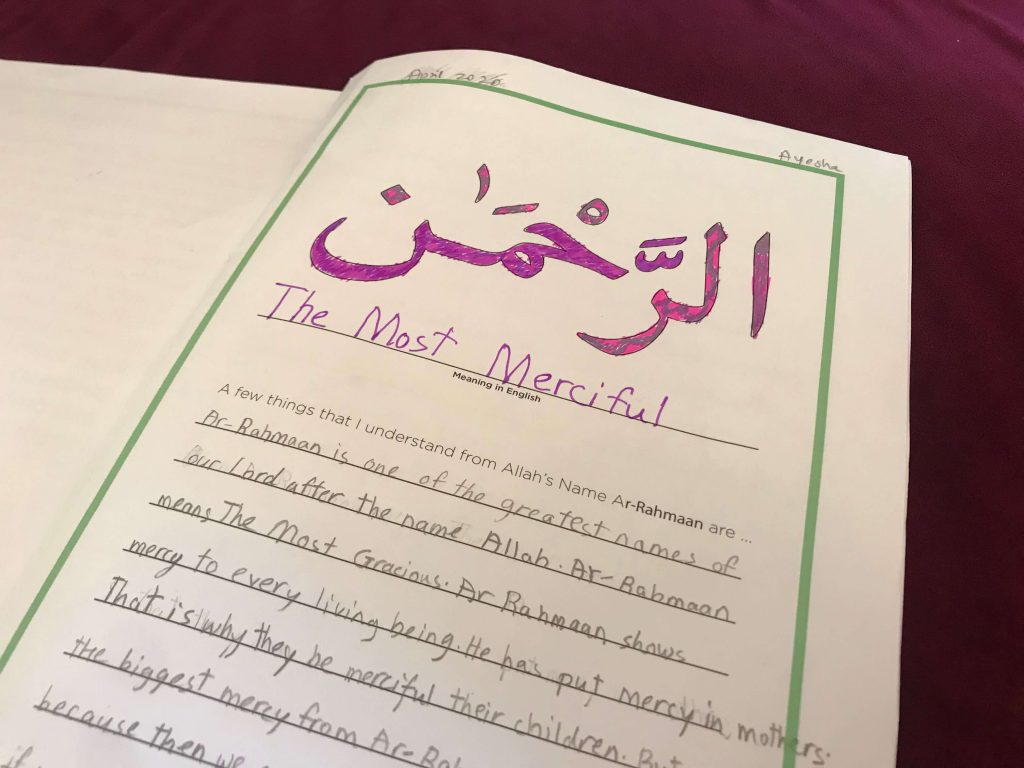 April 2020
Ayesha
الرَّحْمَٰن
The Most Merciful
Meaning in English
A few things that I understand from Allah's Name Ar-Rahmaan are ...
Ar-Rahmaan is one of the greatest names of
our Lord after the name Allah. Ar-Rahmaan
means The Most Gracious. Ar Rahmaan shows
mercy to every living being. He has put mercy in mothers.
That is why they be merciful their children. But
the biggest mercy from Ar-Rah
because then we
if